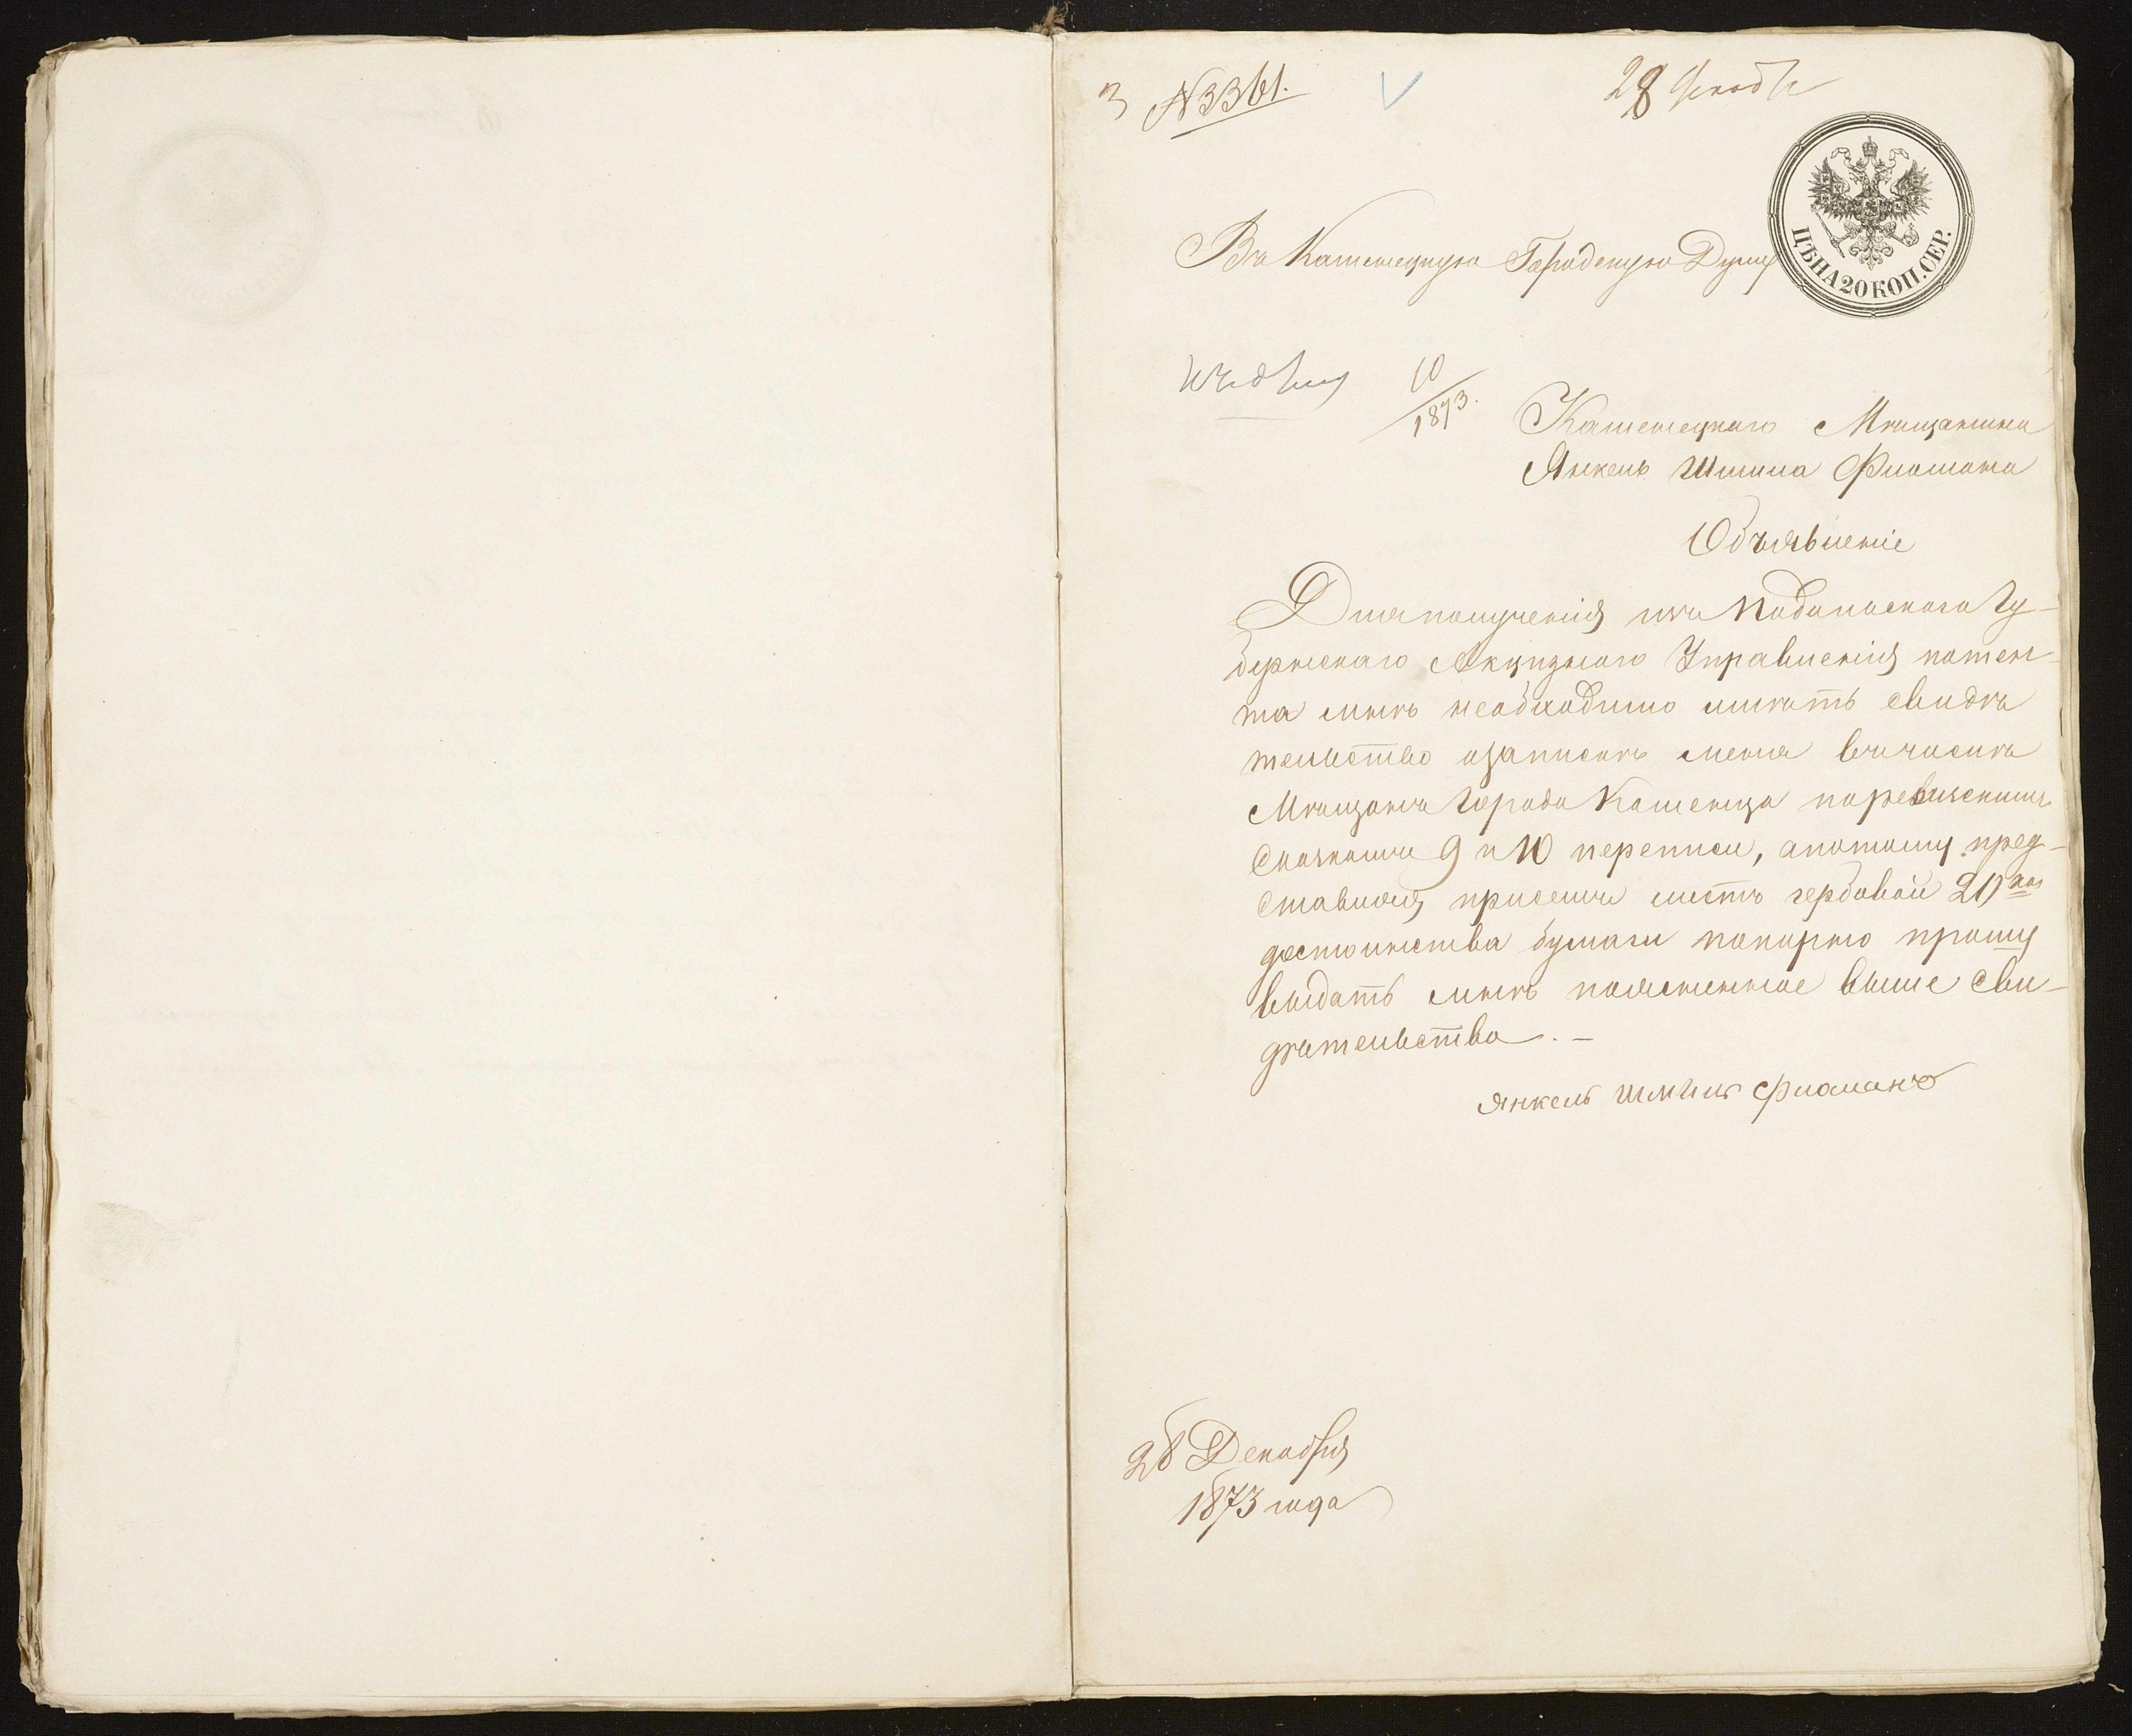 3 № 3361. 28 Декабр
ЦѢНА 20 КОП. СЕР.
Въ Каменецкую Городскую Думу
10
1873.
Каменецкаго Мѣщанина
Янкель Шмиля Фиамана
Объявленіе
Для полученія изъ Подольскаго Гу-
бернскаго Акцизнаго Управленія патен-
та мнѣ необходимо имѣть свидѣ
тельство о записке меня въ число
Мѣщанъ города Каменца по ревизскимъ
сказкамъ 9 и 10 переписи, а потому пред-
ставляя при семъ листъ гербовой 20 коп
достоинства бумаги покорно прошу
выдать мнѣ поясненное выше сви-
дѣтельство. –
Янкель Шмиль Фиаманъ
28 Декабря
1873 года